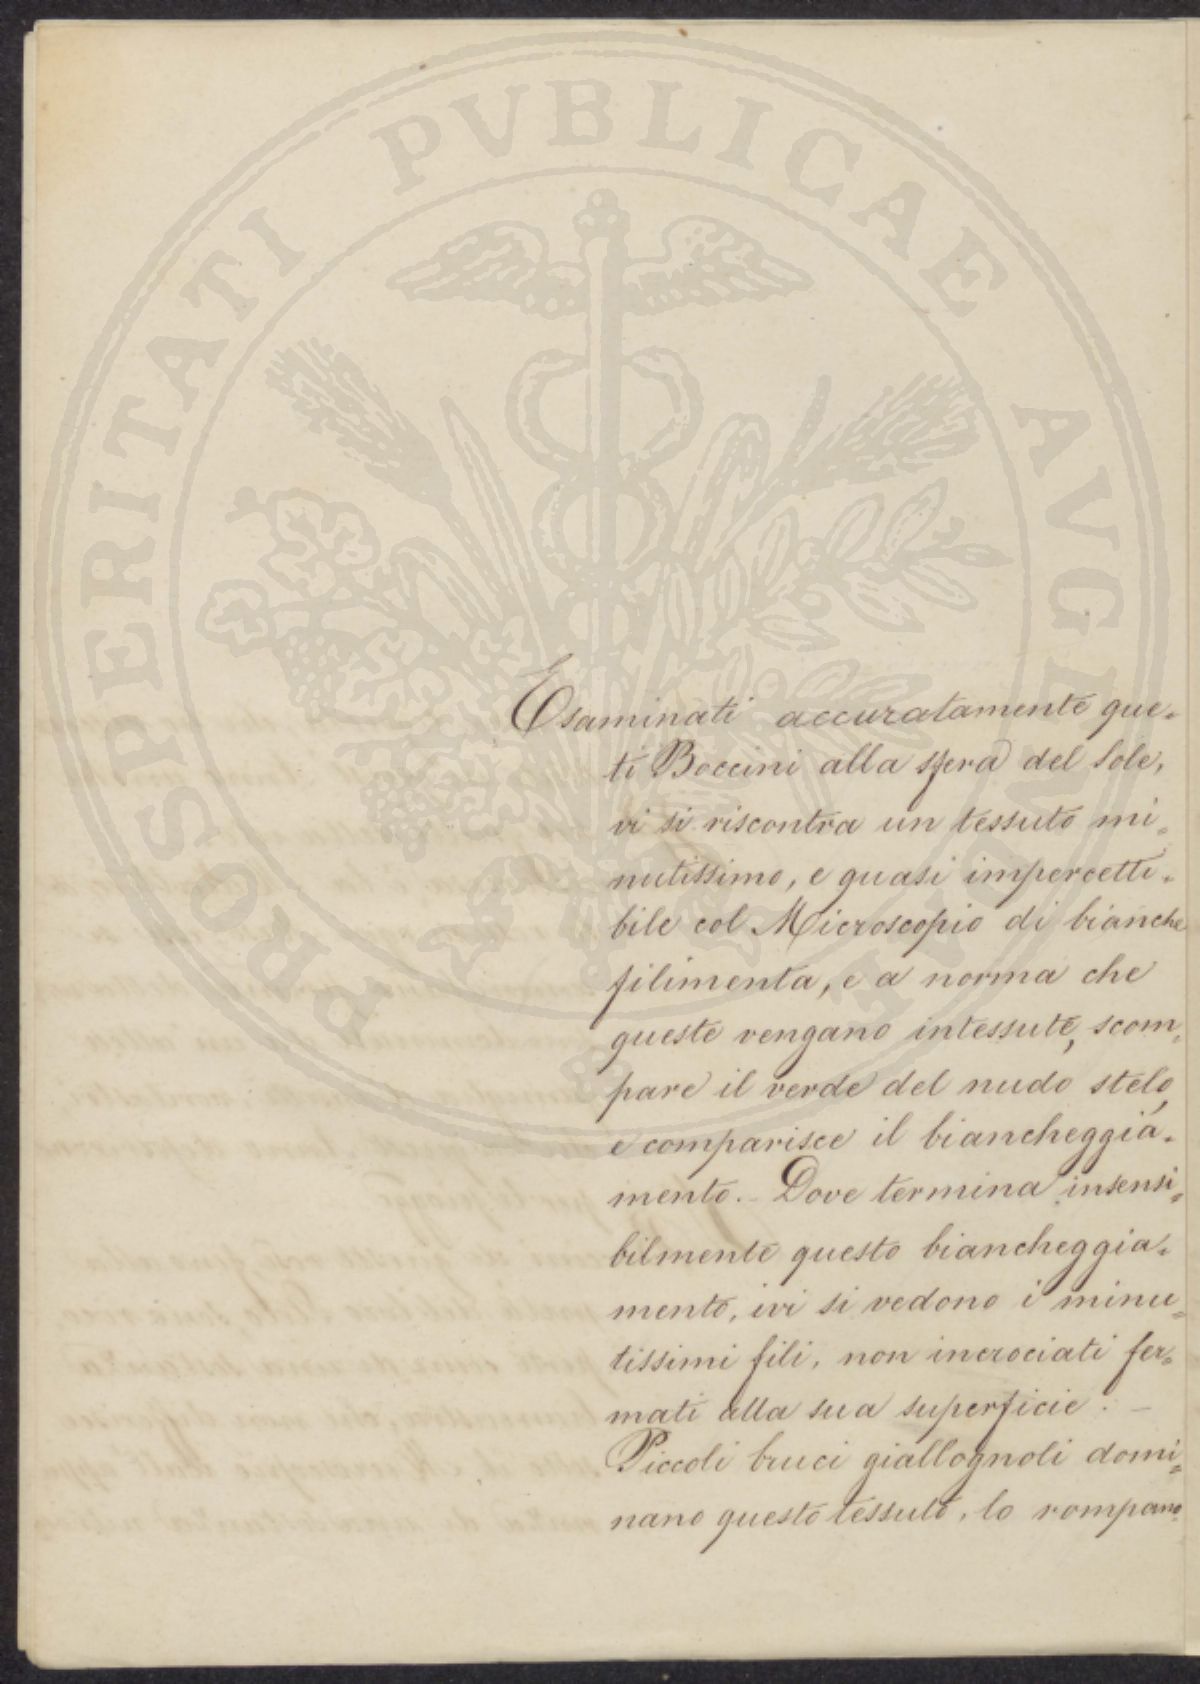 PROSPERITATI PVBLICAE AVGENDAE
Esaminati accuratamente que=
ti Boccini alla sfera del Sole,
vi si riscontra un tessuto mi=
nutissimo, e quasi impercetti=
bile col Microscopio di bianche
filimenta, e a norma che
queste vengano intessute, scom=
pare il verde del nudo stelo,
e comparisce il biancheggia=
mento. - Dove termina insensi=
bilmente questo biancheggia=
mento, ivi si vedono i minu=
tissimi fili, non incrociati fer=
mati alla sua superficie. -
Piccoli bruci giallognoli domi=
nano questo tessuto, lo rompano